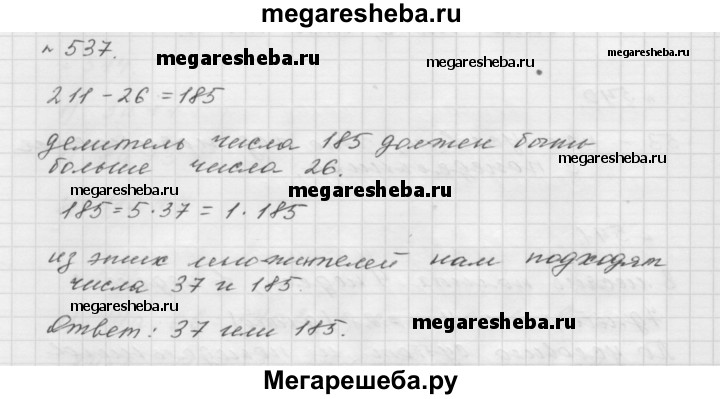 megaresheba.ru
№ 537.
megaresheba.ru
megaresheba.ru
211 - 26 = 185
делитель числа 185 должен быть
megaresheba.ru
больше числа 26.
megaresheba.ru
megaresheba.ru
185 = 5 · 37 = 1 · 185
из этих множителей нам подходят
числа 37 и 185.
megaresheba.ru
megaresheba.ru
Ответ: 37 или 185.
Мегарешеба.ру